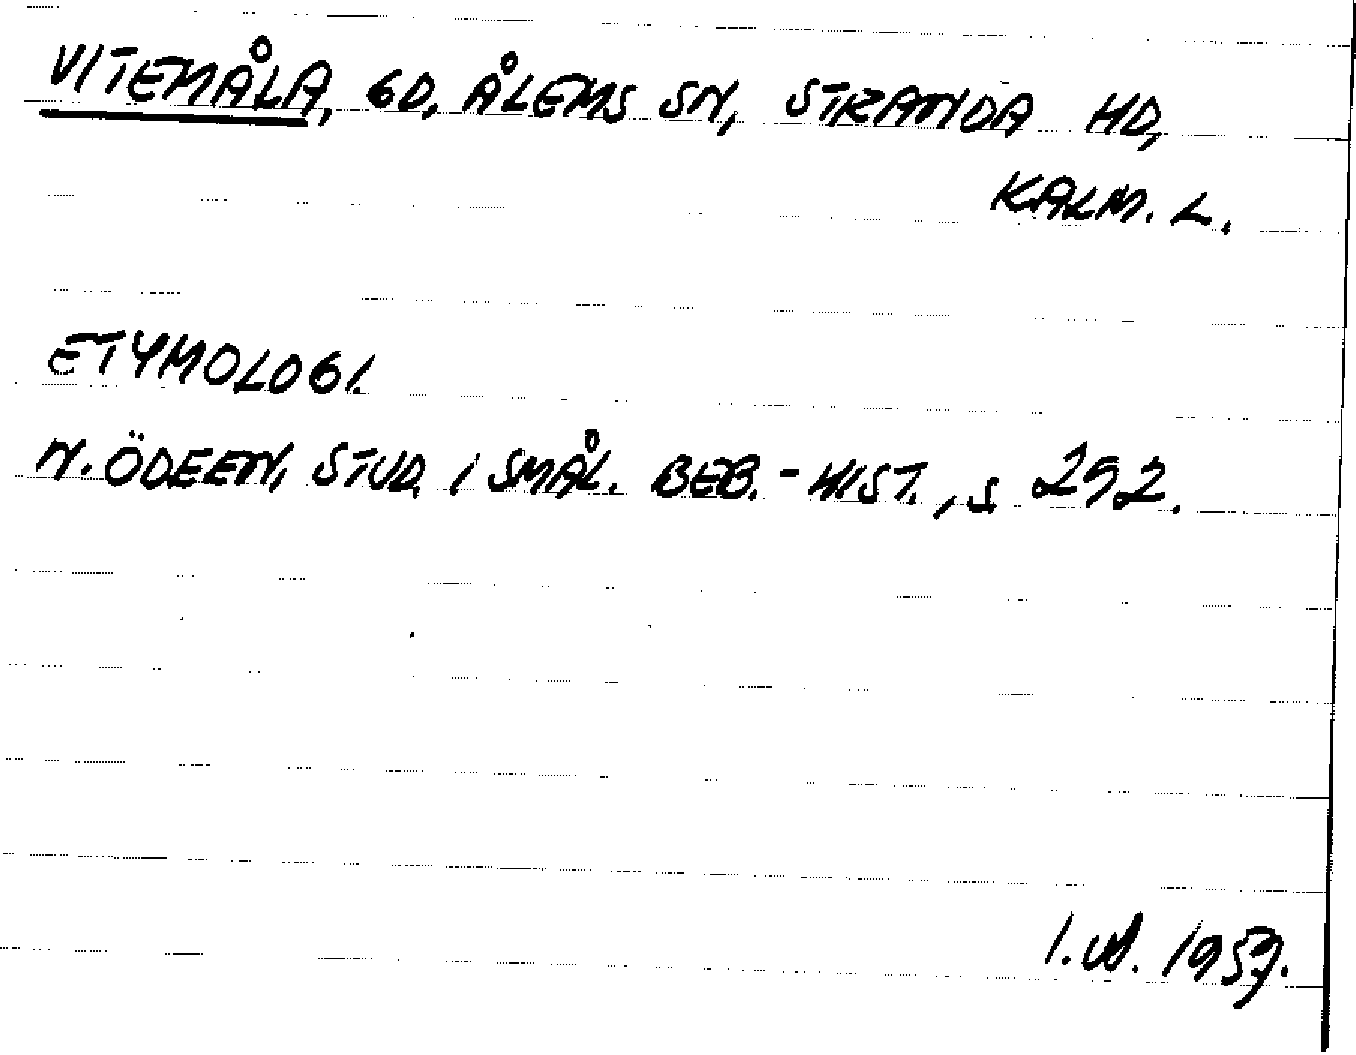 VITEMÅLA, GD, ÅLEMS SN, STRANDA HD,
KALM. L.
ETYMOLOGI.
N. ÖDEEN, STUD. I SMÅL. BEB.-HIST., S 292.
1. 1957.